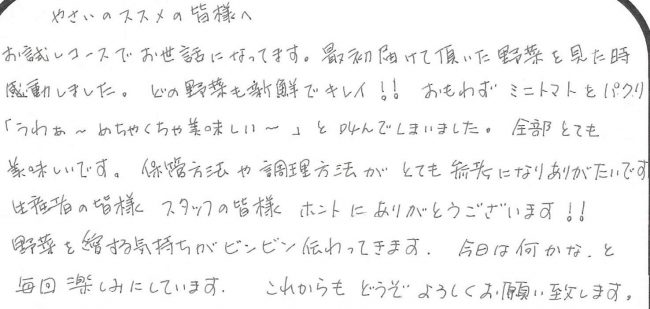 やさいのススメの皆様へ
お試しコースでお世話になってます。最初届けて頂いた野菜を見た時
感動しました。どの野菜も新鮮でキレイ!! おもわずミニトマトをパクリ
「うわぁ~めちゃくちゃ美味しい~」と叫んでしまいました。全部とても
美味しいです。保管方法や調理方法がとても参考になりありがたいです
生産者の皆様 スタッフの皆様 ホントにありがとうございます!!
野菜を愛する気持ちがビンビン伝わってきます. 今日は何かな.と
毎回楽しみにしています. これからもどうぞよろしくお願い致します。